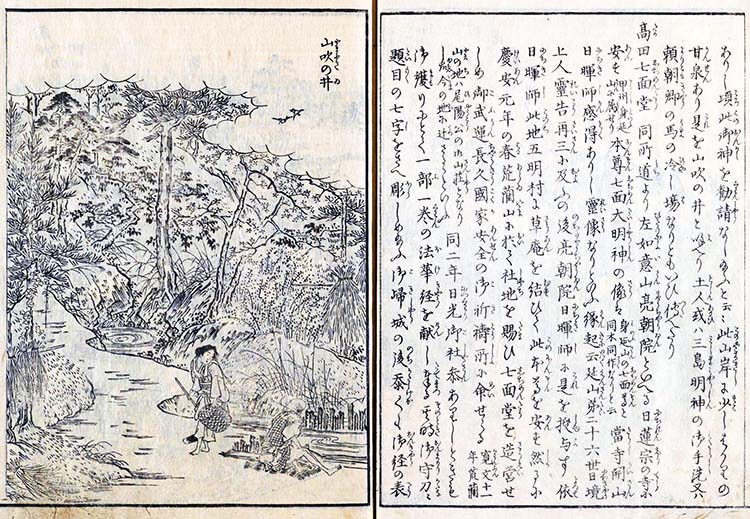 ありし頃此御神を勧請なし給ふと云云此山岸に少しはかりの
甘泉あり是を山吹の井と呼り 土人或ハ三島明神の御手洗又
頼朝卿の馬の冷し場なりともいひ傳へたり
高田七面堂 同所道より左如意山亮朝院といへる日蓮宗の寺に
安す 甲州身延山に属せり 本尊七面大明神の像は 身延山の七面と同木同作なりと云 當寺開山
日暉師感得ありし靈像なりといふ縁起云延山第二十六世日境
上人靈告再三に及ふの後亮朝院日暉師に是を授与す依
日暉師此地五明村に草庵を結ひて此本尊を安す然るに
慶安元年の春荒藺山に於て社地を賜ひ七面堂を造営せ
しめ御武運長久國家安全の御祈祷所に命せらる 寛文十一年荒藺
山の地ハ尾陽公の山荘となりし故今の地に迁 同二年日光御社参ありしときも
御護りにとて一部一巻の法華経を献し 其時御守刀に
題目の七字をさへ彫しめ給ふ御帰城の後忝くも御経の表
山吹の井